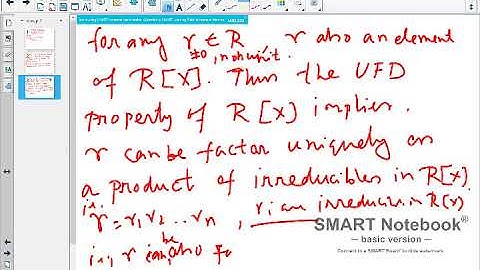 for any r ∈ R r also an element
≠0, nonunit.
of R[X]. Thus the UFD
property of R[X] implies.
r can be factor uniquely as
a product of irreducibles in R[x].
i.e. r = r₁ r₂ .. rₙ , rᵢ are irreducibles in R[x]
i.e., r can be also fa
SMART Notebook®
— basic version —